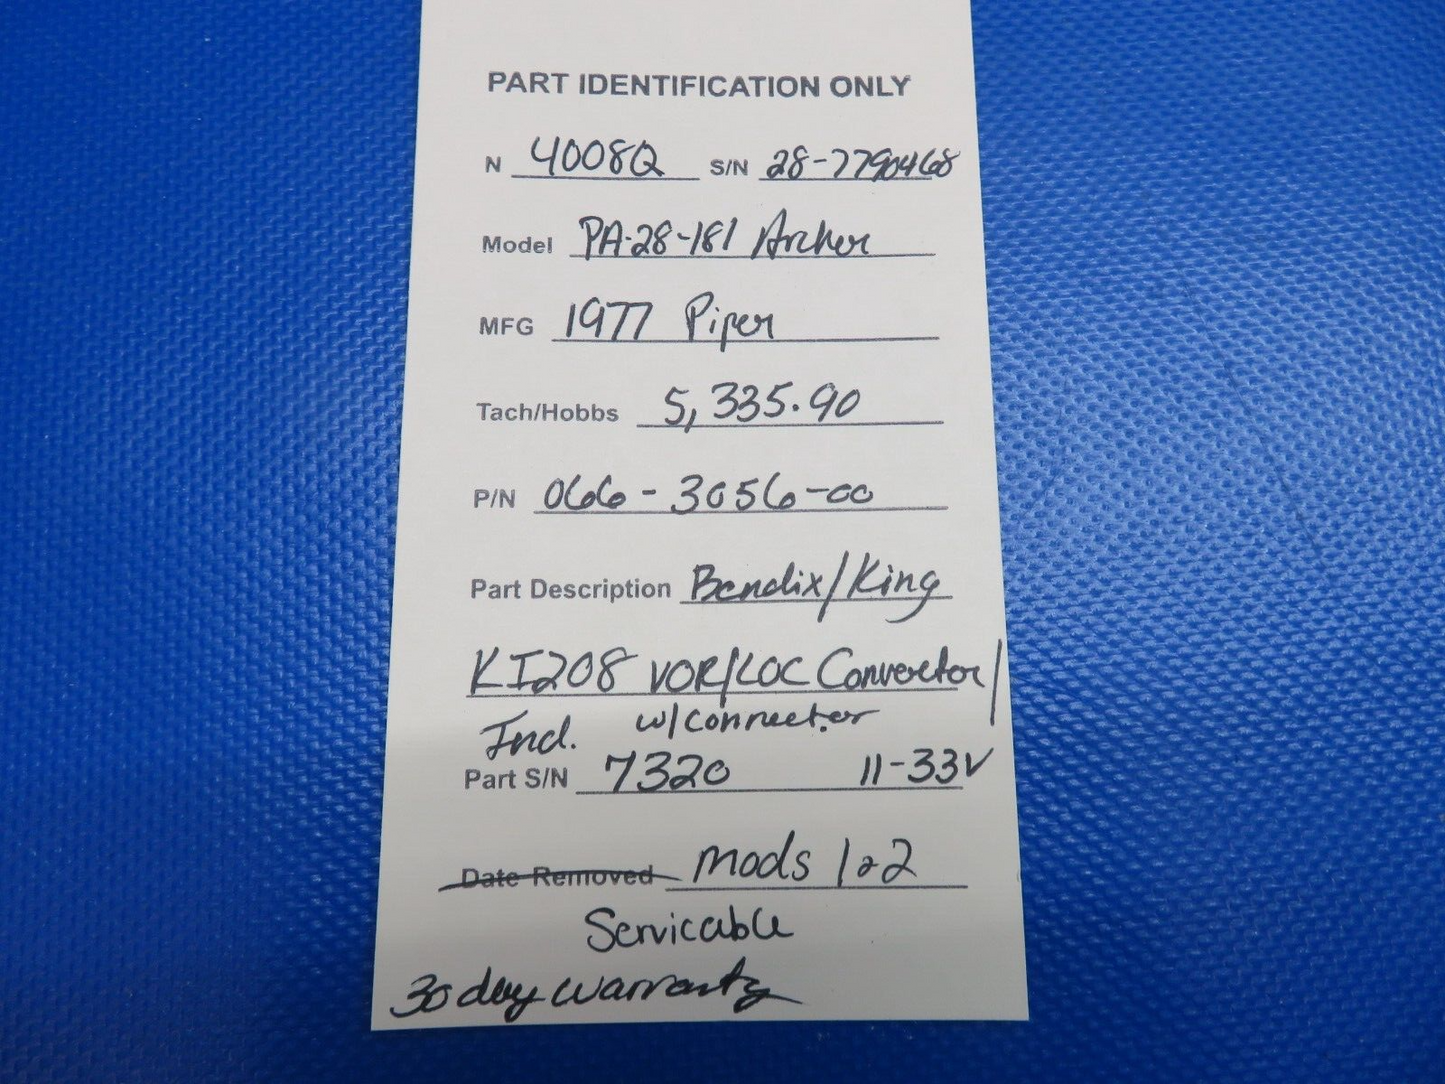 PART IDENTIFICATION ONLY
N 4008Q S/N 28-7790468
Model PA-28-181 Archer
MFG 1977 Piper
Tach/Hobbs 5,335.90
P/N 066-3056-00
Part Description Bendix/King
KI208 VOR/LOC Convertor/
Ind. w/connector
Part S/N 7320 11-33V
Date Removed Mods 1&2
Servicable
30 day warranty